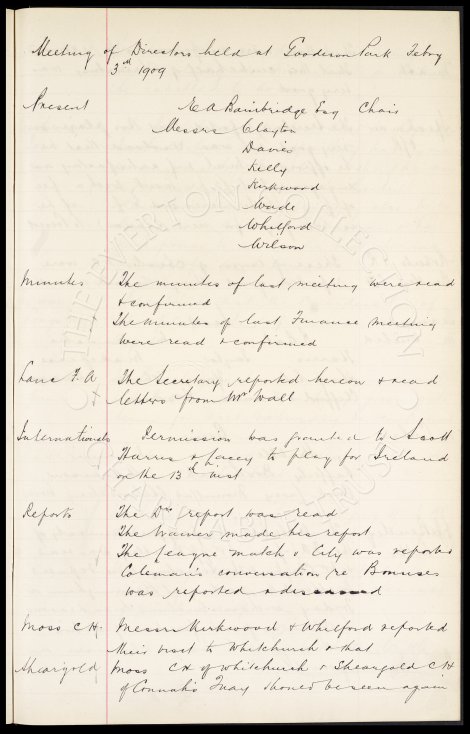 Meeting of Directors held at Goodison Park Febry
3rd 1909
Present E A Bainbridge Esq Chair
Messrs Clayton
Davies
Kelly
Kirkwood
Wade
Whitford
Wilson
Minutes The minutes of last meeting were read
& confirmed
The minutes of last Finance meeting
were read & confirmed
Lanc F. A The Secretary reported hereon & read
letters from Mr Wall
Internationals Permission was granted to Scott
Harris & Lacey to play for Ireland
on the 13th inst
Reports The Drs report was read
The trainer made his report
The League match v City was reported
Coleman's conversation re Bonuses
was reported &
Moss C.H. Messrs Kirkwood & Whitford reported
their visit to Whitchurch & that
Shearigold Moss CH of Whitchurch & Sheargold CH
of Connah's Quay should be seen again
THE EVERTON COLLECTION
CHARITABLE TRUST